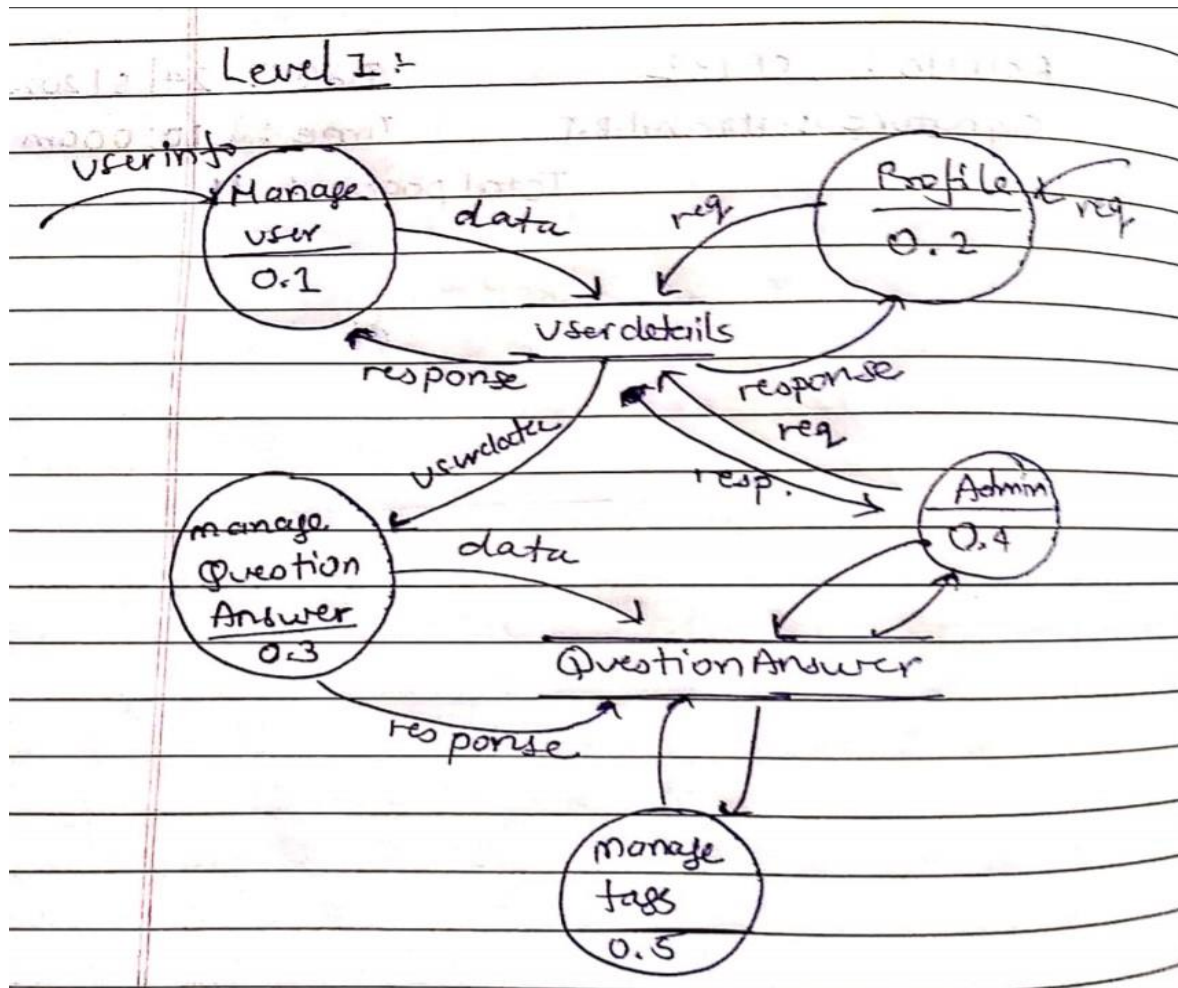 Level I :-
userinfo
Manage
user
0.1
data
req
Profile
0.2
req
userdetails
response
response
userdata
req
resp.
Admin
0.4
manage
Question
Answer
0.3
data
QuestionAnswer
response
manage
tags
0.5